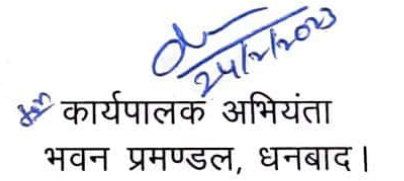 24/2/2023
कार्यपालक अभियंता
भवन प्रमण्डल, धनबाद।